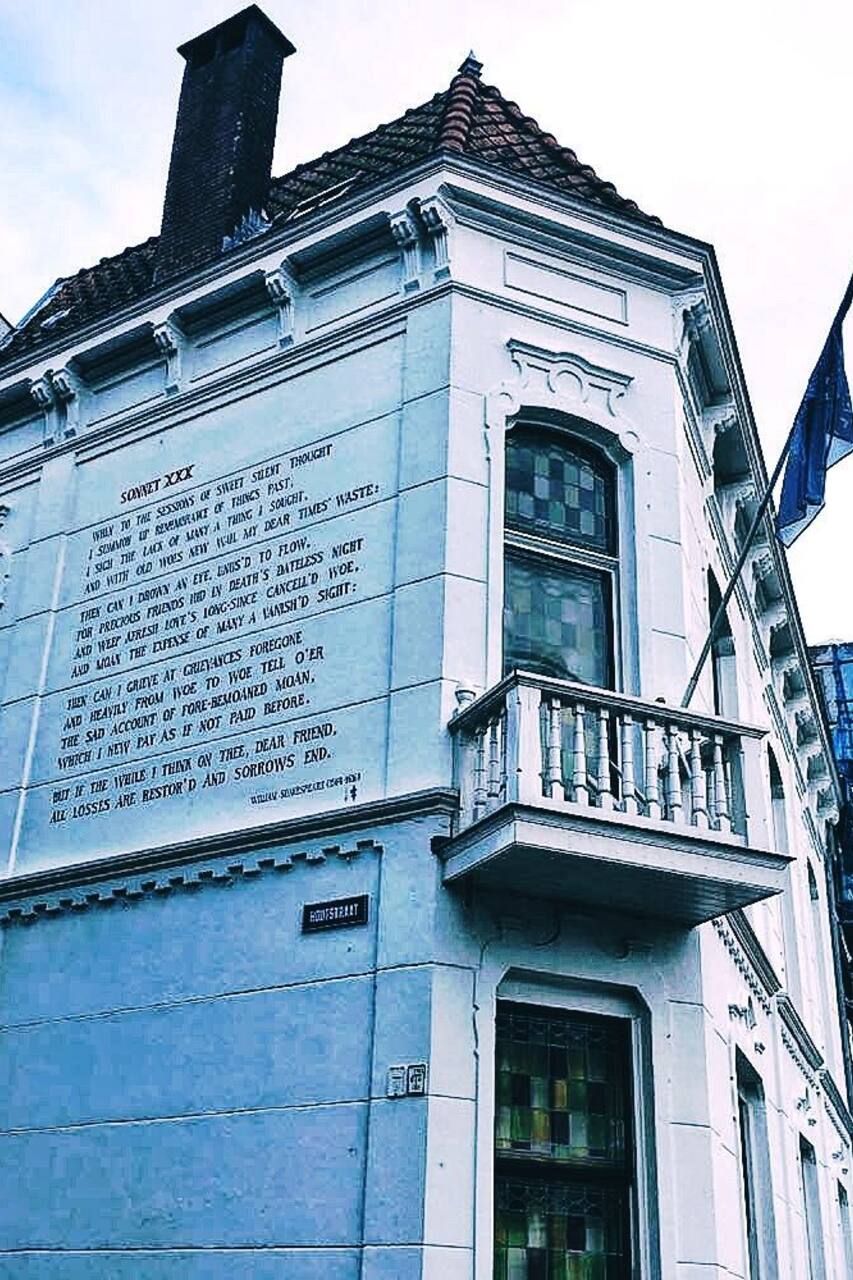 SONNET XXX
WHEN TO THE SESSIONS OF SWEET SILENT THOUGHT
I SUMMON UP REMEMBRANCE OF THINGS PAST,
I SIGH THE LACK OF MANY A THING I SOUGHT,
AND WITH OLD WOES NEW WAIL MY DEAR TIMES' WASTE:
THEN CAN I DROWN AN EYE, UNUS'D TO FLOW,
FOR PRECIOUS FRIENDS HID IN DEATH'S DATELESS NIGHT
AND WEEP AFRESH LOVE'S LONG-SINCE CANCELL'D WOE,
AND MOAN THE EXPENSE OF MANY A VANISH'D SIGHT:
THEN CAN I GRIEVE AT GRIEVANCES FOREGONE
AND HEAVILY FROM WOE TO WOE TELL O'ER
THE SAD ACCOUNT OF FORE-BEMOANED MOAN,
WHICH I NEW PAY AS IF NOT PAID BEFORE.
BUT IF THE WHILE I THINK ON THEE, DEAR FRIEND,
ALL LOSSES ARE RESTOR'D AND SORROWS END.
WILLIAM SHAKESPEARE (1564-1616)
HOUTSTRAAT